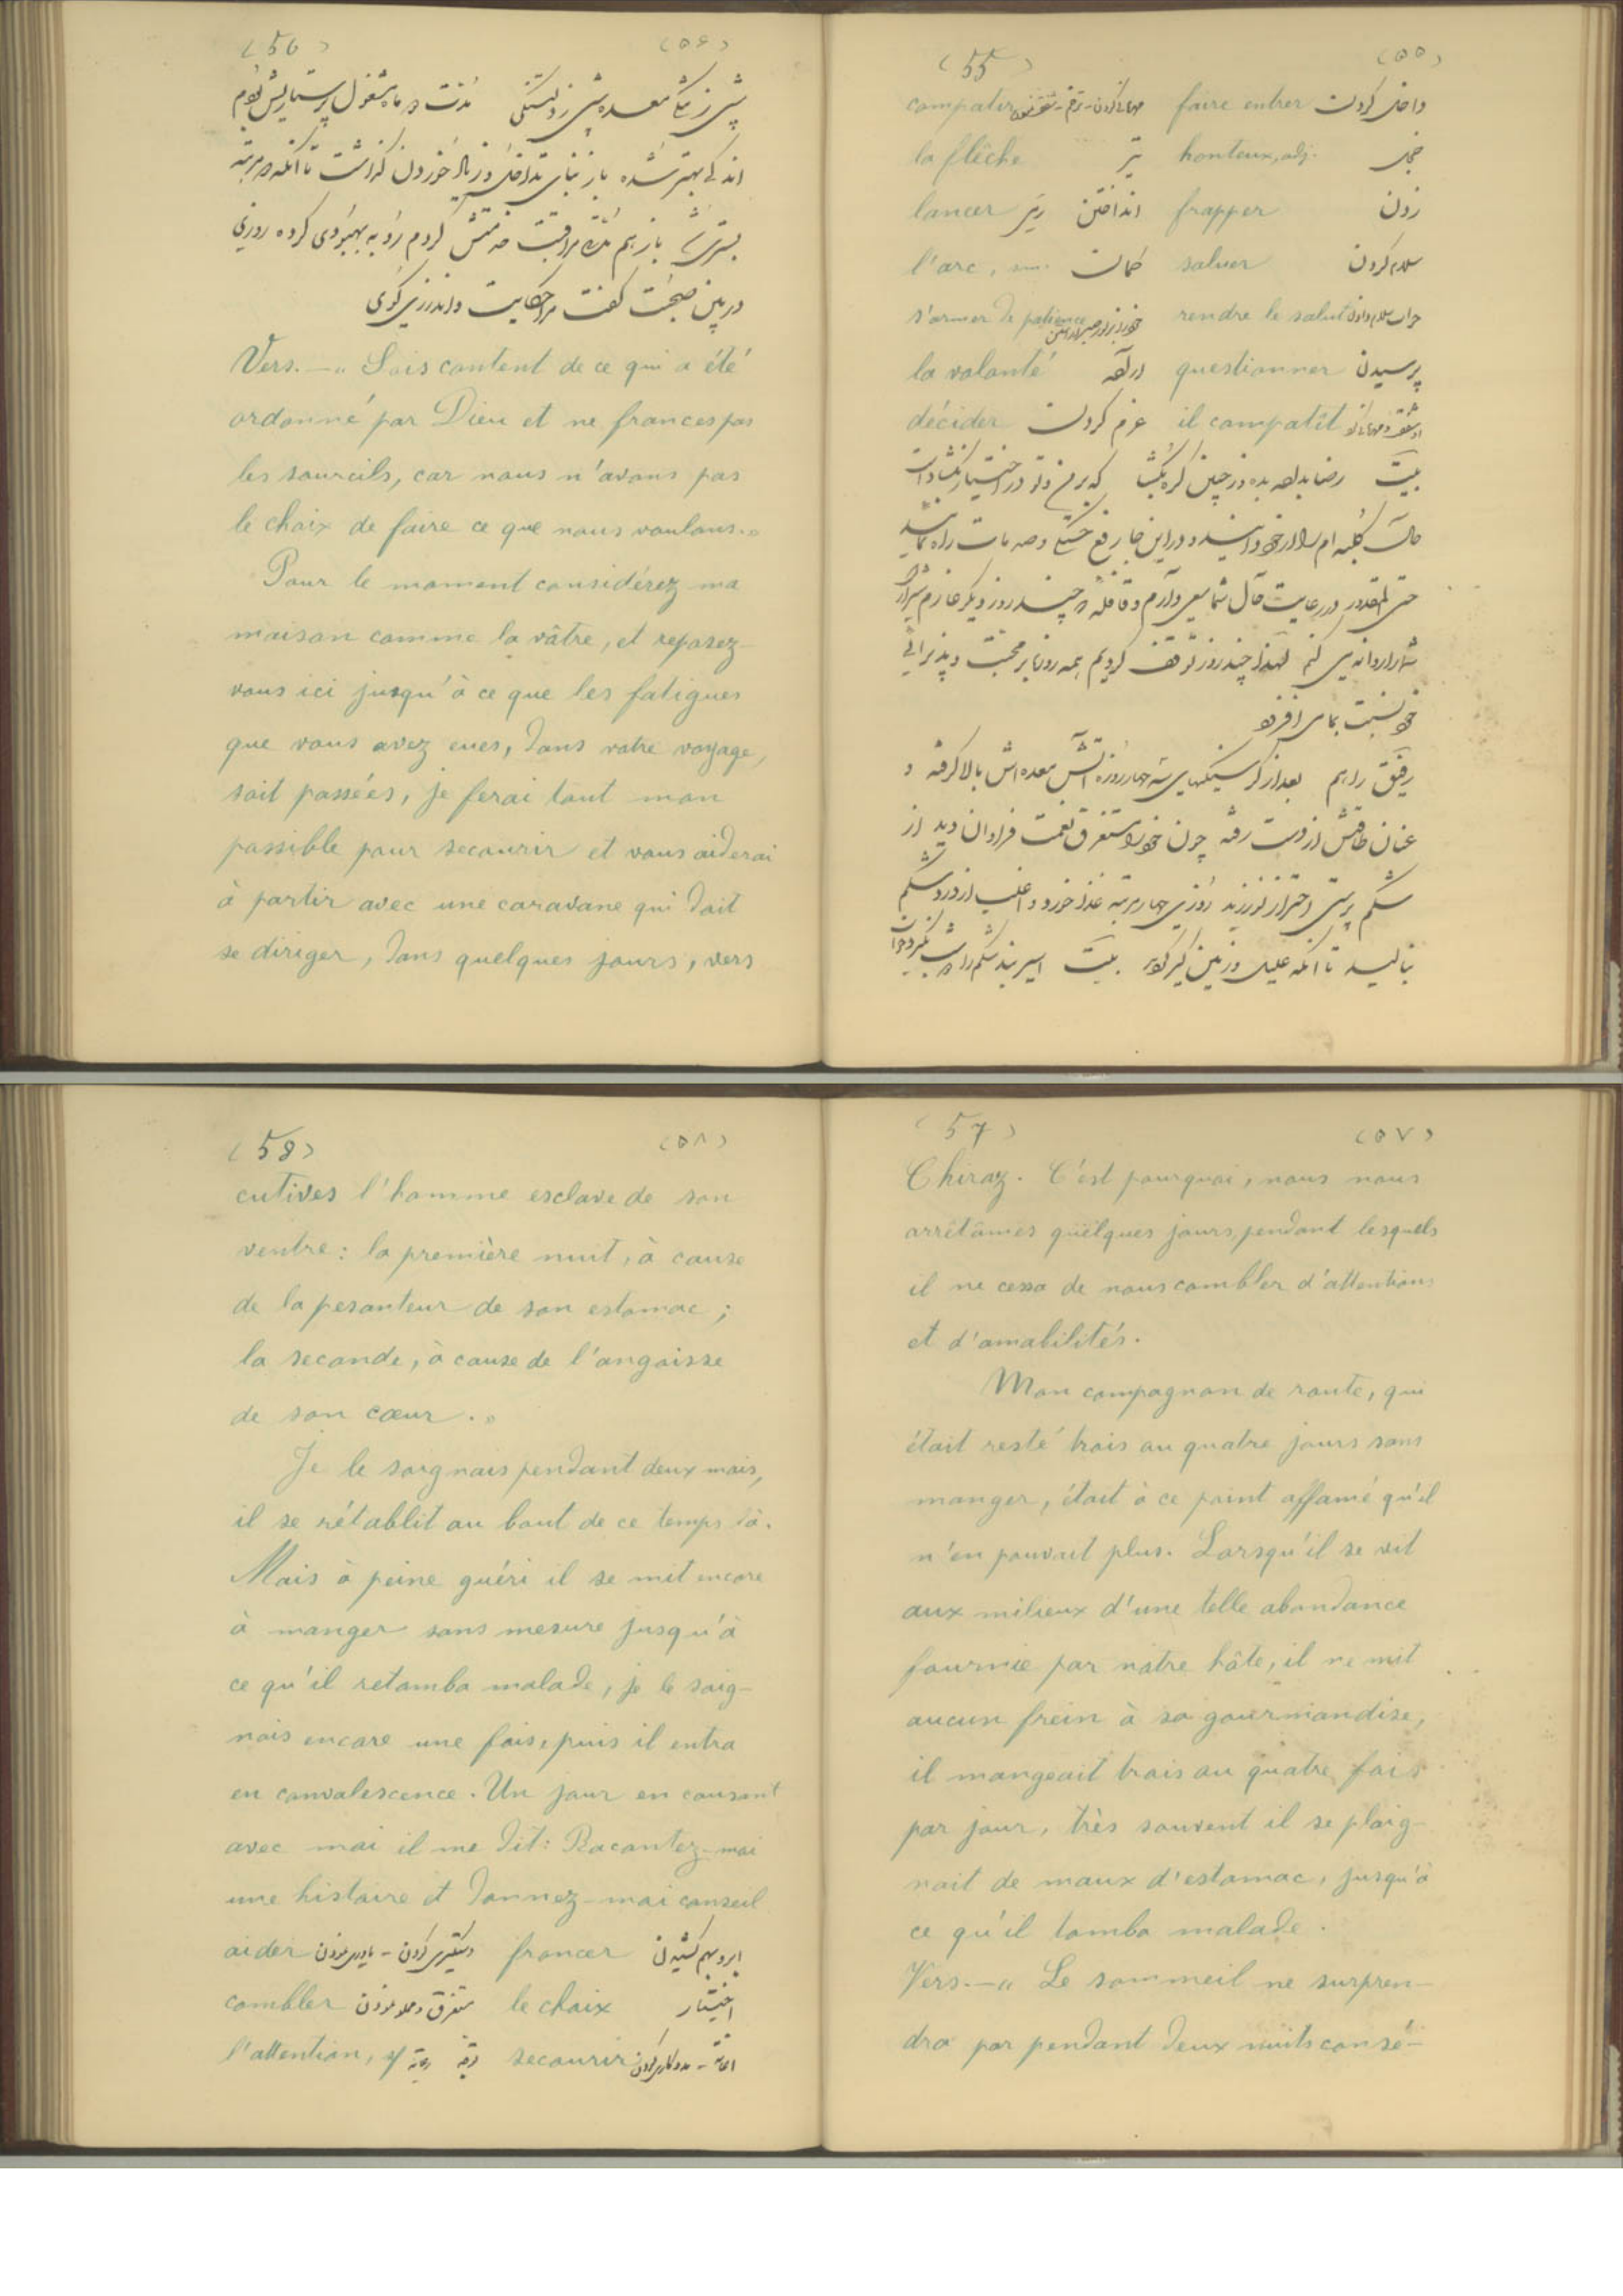 (55) (٥٥)
compatir faire entrer داخل کردن
la flèche تیر honteux, adj. خجل
lancer انداختن تیر frapper زدن
l'arc, sm. کمان saluer سلام کردن
s'armer de patience rendre le salut جواب سلام دادن
la volonté اراده questionner پرسیدن
décider عزم کردن il compatît
بیت رضا بداده بده وز جبین گره بگشا که بر من و تو در اختیار نگشادست
حال کلبه ام را از خود دانید و در این جا رفع خستگی و صدمات راه نمائید
حتی المقدور در رعایت حال شما سعی دارم و قافله چند روز دیگر عازم شیراز
شما را روانه می کنم لهذا چند روز توقف کردیم همه روزه بر محبت و پذیرائی
خود نسبت بما می افزود
رفیق راهم بعد از گرسنگیهای سه چهار روزه آتش معده اش بالا گرفته و
عنان طاقتش از دست رفته چون خود را مستغرق نعمت فراوان دید از
شکم پرستی احتراز نورزید روزی چهار مرتبه غذا خورد و اغلب از درد شکم
بنالید تا آنکه علیل و زمین گیر گردید بیت اسیر بند شکم را دو شب نگیرد خواب
(56) (٥٦)
شبی ز معده سنگی شبی ز دلتنگی مدت دو ماه مشغول پرستاریش بودم
اندکی بهتر شده باز بنای تداخل و زیاد خوردن گذاشت تا آنکه مرتبه
بستری شد باز هم مراقبت خدمتش کردم رو به بهبودی کرده روزی
در بین صحبت گفت مرا حکایت و اندرزی گوی
Vers. — « Sois content de ce qui a été
ordonné par Dieu et ne fronces pas
les sourcils, car nous n'avons pas
le choix de faire ce que nous voulons. »
Pour le moment considérez ma
maison comme la vôtre, et reposez-
vous ici jusqu'à ce que les fatigues
que vous avez eues, dans votre voyage,
soit passées, je ferai tout mon
possible pour secourir et vous aiderai
à partir avec une caravane qui doit
se diriger, dans quelques jours, vers
(57) (٥٧)
Chiraz. C'est pourquoi, nous nous
arrêtâmes quelques jours, pendant lesquels
il ne cessa de nous combler d'attentions
et d'amabilités.
Mon compagnon de route, qui
était resté trois ou quatre jours sans
manger, était à ce point affamé qu'il
n'en pouvait plus. Lorsqu'il se vit
aux milieux d'une telle abondance
fournie par notre hôte, il ne mit
aucun frein à sa gourmandise,
il mangeait trois ou quatre fois
par jour, très souvent il se plaig-
nait de maux d'estomac, jusqu'à
ce qu'il tomba malade.
Vers. — « Le sommeil ne surpren-
dra par pendant deux nuits consé-
(58) (٥٨)
cutives l'homme esclave de son
ventre: la première nuit, à cause
de la pesanteur de son estomac;
la seconde, à cause de l'angoisse
de son cœur. »
Je le soignais pendant deux mois,
il se rétablit au bout de ce temps là.
Mais à peine guéri il se mit encore
à manger sans mesure jusqu'à
ce qu'il retomba malade, je le soig-
nais encore une fois, puis il entra
en convalescence. Un jour en causant
avec moi il me dit: Racontez-moi
une histoire et donnez-moi conseil
aider دستگیری کردن - یاوری نمودن froncer ابرو بهم کشیدن
combler مستغرق و مملو نمودن le choix اختیار
l'attention, sf secourir اعانه - مددکاری کردن